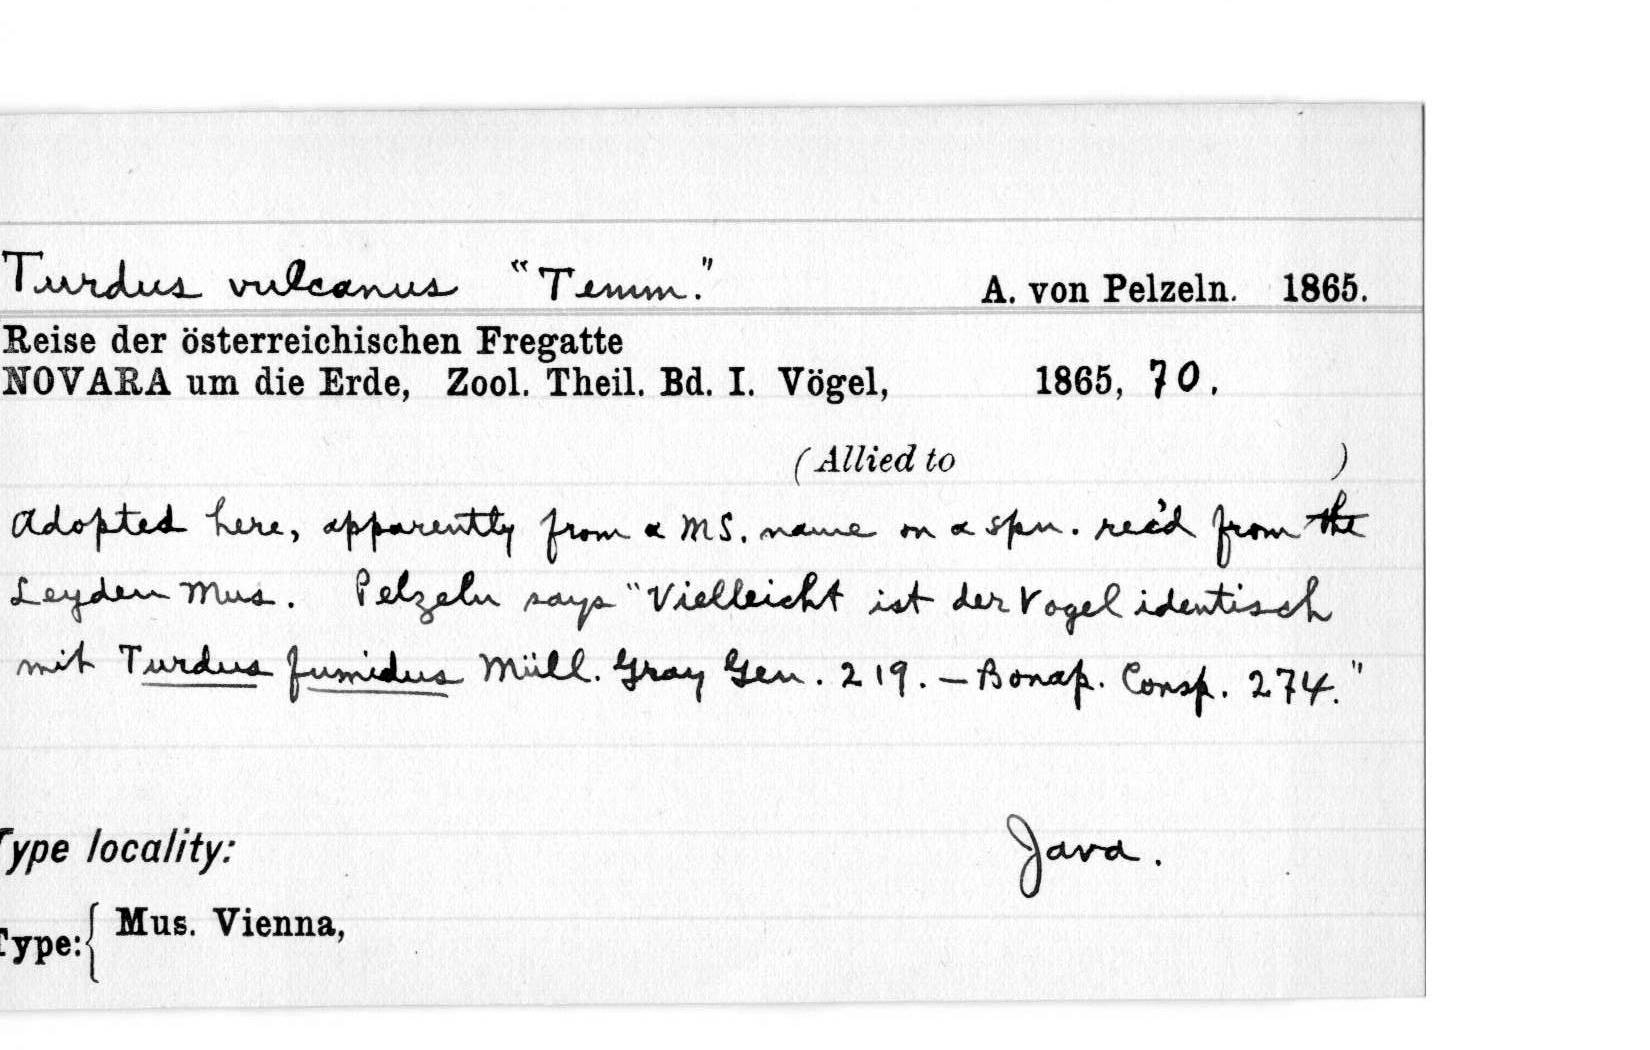 Turdus vulcanus "Temm." A. von Pelzeln. 1865.
Reise der österreichischen Fregatte
NOVARA um die Erde, Zool. Theil. Bd. I. Vögel, 1865, 70.
(Allied to )
Adopted here, apparently from a MS. name on a spn. rec'd from the
Leyden Mus. Pelzeln says "Vielleicht ist der Vogel identisch
mit Turdus fumidus Müll. Gray Gen. 219. — Bonap. Consp. 274."
Type locality: Java.
Type: { Mus. Vienna,